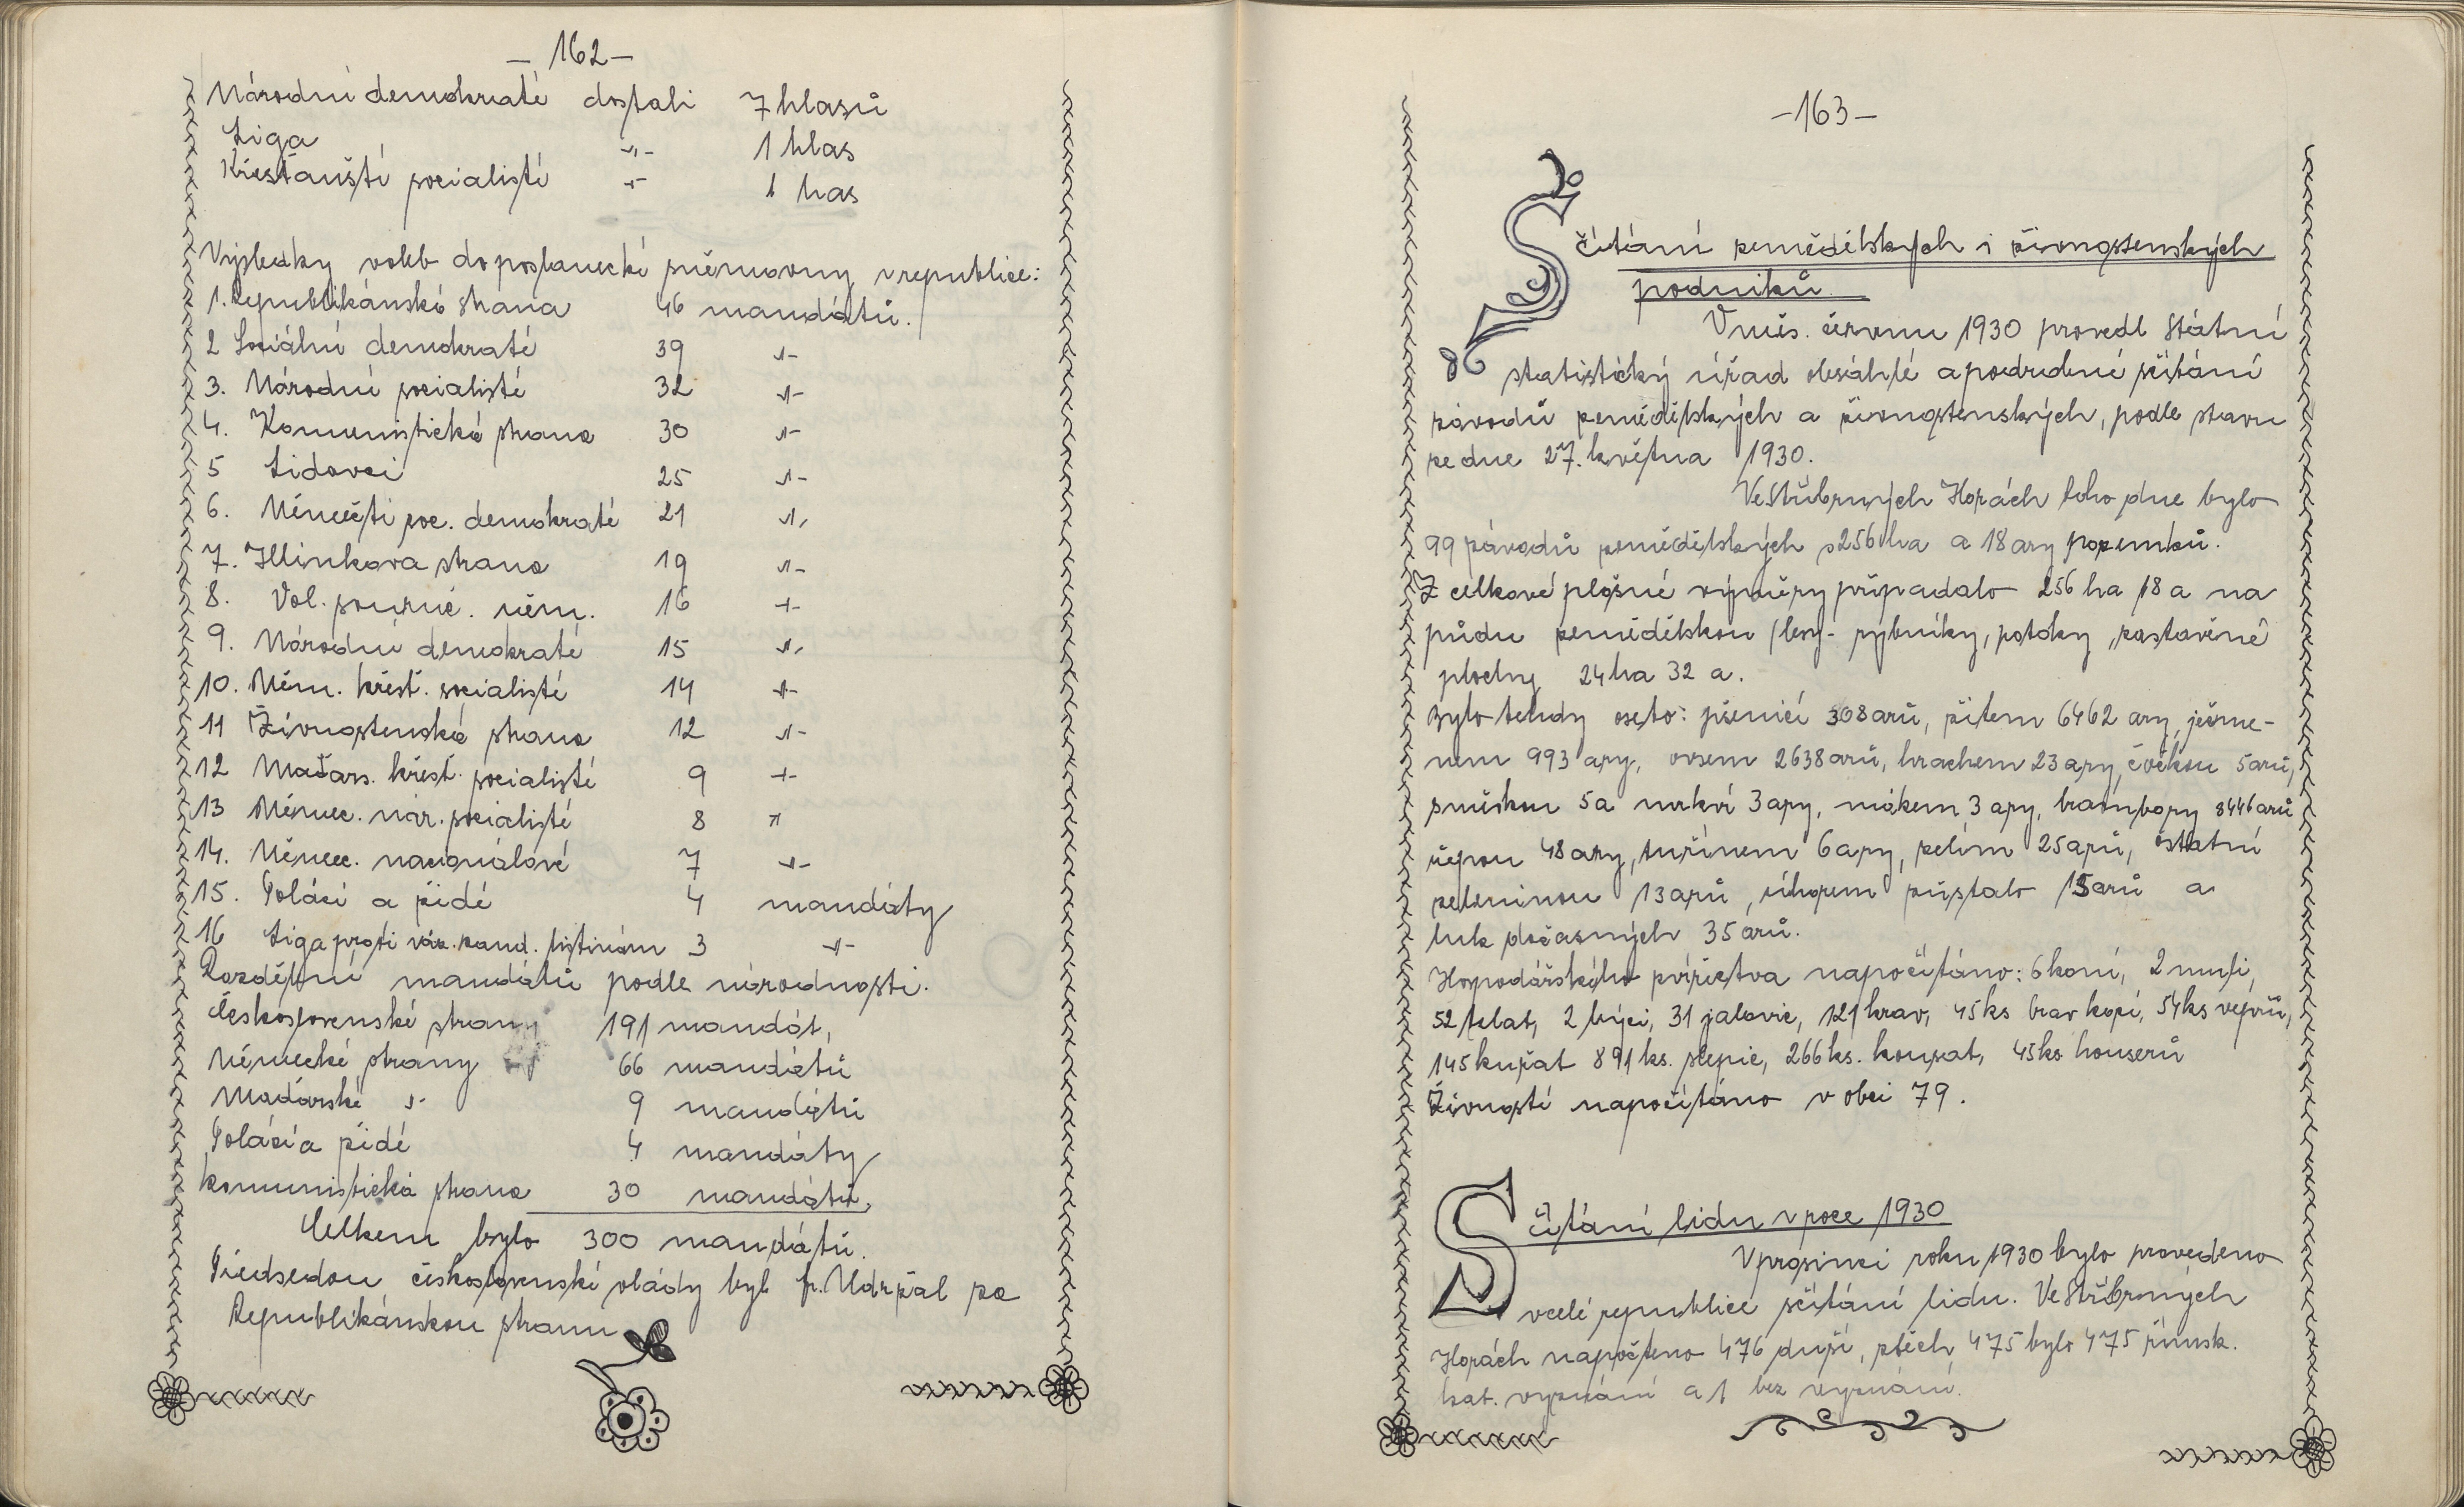 – 162 –
Národní demokraté dostali 7 hlasů
Liga -"- 1 hlas
Křesťanští socialisté -"- 1 has
Výsledky voleb do poslanecké sněmovny v republice:
1. Republikánská strana 46 mandátů.
2 Sociální demokraté 39 -"-
3. Národní socialisté 32 -"-
4. Komunistická strana 30 -"-
5 Lidovci 25 -"-
6. Němečtí soc. demokraté 21 -"-
7. Hlinkova strana 19 -"-
8. Vol. souruč. něm. 16 -"-
9. Národní demokraté 15 -"-
10. Něm. křest. socialisté 14 -"-
11 Živnostenská strana 12 -"-
12 Maďars. křesť. socialisté 9 -"-
13 Němec. nár. socialisté 8 "
14. Němec. nacionálové 7 -"-
15. Poláci a židé 4 mandáty
16 Liga proti váz. kand. listinám 3 -"-
Rozdělení mandátů podle národnosti.
Československé strany 191 mandát,
Německé strany 66 mandátů
Maďarské -"- 9 mandátů
Poláci a židé 4 mandáty
Komunistická strana 30 mandátů.
Celkem bylo 300 mandátů.
Předsedou československé vlády byl fr. Udržal za
Republikánskou stranu
– 163 –
Sčítání zemědělských i živnostenských
podniků.
V měs. červnu 1930 provedl Státní
statistický úřad obsáhlé a podrobné sčítání
závodů zemědělských a živnostenských, podle stavu
ze dne 27. května 1930.
Ve Stříbrných Horách toho dne bylo
99 závodů zemědělských s 256 ha a 18 ary pozemků.
Z celkové plošné výměry připadalo 256 ha 18 a na
půdu zemědělskou /lesy- rybníky, potoky, zastavěné
plochy 24 ha 32 a.
Bylo tehdy oseto: pšenicí 308 arů, žitem 6462 ary, ječme-
nem 993 ary, ovsem 2638 arů, hrachem 23 ary, čočkou 5 arů,
směskou 5 a mrkví 3 ary, mákem 3 ary, brambory 8446 arů
řepou 48 ary, tuřínem 6 ary, zelím 25 arů, ostatní
zeleninou 13 arů, úhorem zůstalo 15 arů a
luk dočasných 35 arů.
Hospodářského zvířectva napočítáno: 6 koní, 2 muli,
52 telat, 2 býci, 31 jalovic, 121 krav, 45 ks brav kozí, 54 ks vepřů,
145 kuřat 891 ks. slepic, 266 ks. housat, 45 ks houserů
Živností napočítáno v obci 79.
Sčítání lidu v roce 1930
V prosinci roku 1930 bylo provedeno
v celé republice sčítání lidu. Ve Stříbrných
Horách napočteno 476 duší, z těch 475 bylo 475 římsk.
kat. vyznání a 1 bez vyznání.